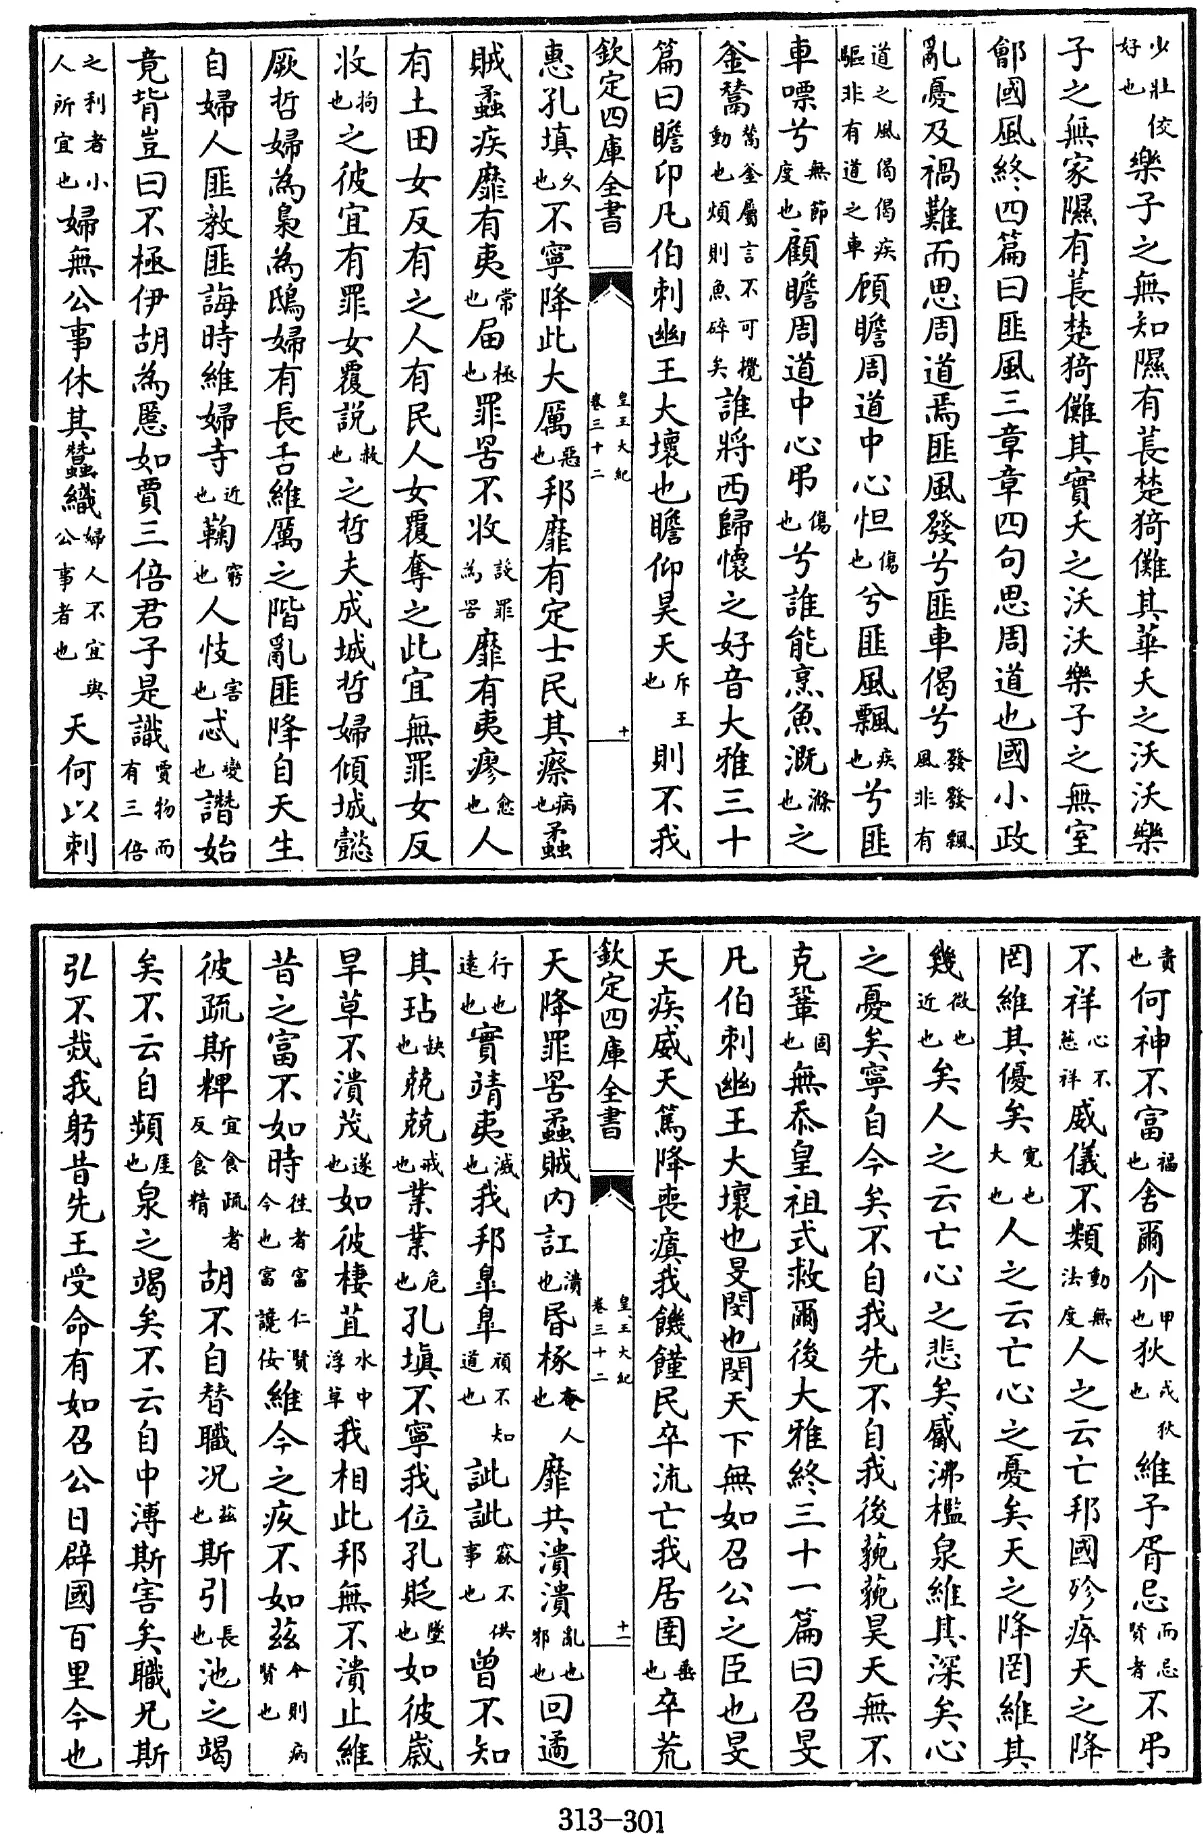 少壯佼好也樂子之無知隰有萇楚猗儺其華夭之沃沃樂
子之無家隰有萇楚猗儺其實夭之沃沃樂子之無室
鄶國風終四篇曰匪風三章章四句思周道也國小政
亂憂及禍難而思周道焉匪風發兮匪車偈兮發發飄風非有
道之風偈偈疾驅非有道之車顧瞻周道中心怛傷也兮匪風飄疾也兮匪
車嘌兮無節度也顧瞻周道中心弔傷也兮誰能烹魚溉滌也之
釜鬵鬵釜屬言不可攪動也煩則魚碎矣誰將西歸懷之好音大雅三十
篇曰瞻卬凡伯刺幽王大壞也瞻仰昊天斥王也則不我
欽定四庫全書 皇王大紀卷三十二 十
惠孔填久也不寧降此大厲惡也邦靡有定士民其瘵病也蟊
賊蟊疾靡有夷常也屆極也罪罟不收設罪為罟靡有夷瘳愈也人
有土田女反有之人有民人女覆奪之此宜無罪女反
收拘也之彼宜有罪女覆説赦也之哲夫成城哲婦傾城懿
厥哲婦為梟為鴟婦有長舌維厲之階亂匪降自天生
自婦人匪敎匪誨時維婦寺近也鞫窮也人忮害也忒變也譖始
竟背豈曰不極伊胡為慝如賈三倍君子是識賈物而有三倍
之利者小人所宜也婦無公事休其蠶織婦人不宜與公事者也天何以刺
責也何神不富福也舍爾介甲也狄戎狄也維予胥忌而忌賢者不弔
不祥心不慈祥威儀不類動無法度人之云亡邦國殄瘁天之降
罔維其優矣寛也大也人之云亡心之憂矣天之降罔維其
幾微也近也矣人之云亡心之悲矣觱沸檻泉維其深矣心
之憂矣寧自今矣不自我先不自我後藐藐昊天無不
克鞏固也無忝皇祖式救爾後大雅終三十一篇曰召旻
凡伯刺幽王大壞也旻閔也閔天下無如召公之臣也旻
天疾威天篤降喪瘨我饑饉民卒流亡我居圉垂也卒荒
欽定四庫全書 皇王大紀卷三十二 十一
天降罪罟蟊賊内訌潰也昏椓奄人也靡共潰潰亂也邪也回遹
行也遠也實靖夷滅也我邦臯臯頑不知道也訿訿窳不供事也曾不知
其玷缺也兢兢戒也業業危也孔塡不寧我位孔貶墜也如彼嵗
旱草不潰茂遂也如彼棲苴水中浮草我相此邦無不潰止維
昔之富不如時往者富仁賢今也富讒佞維今之疚不如茲今則病賢也
彼疏斯粺宜食疏者反食精胡不自替職况茲也斯引長也池之竭
矣不云自頻厓也泉之竭矣不云自中溥斯害矣職兄斯
弘不烖我躬昔先王受命有如召公日辟國百里今也
313-301